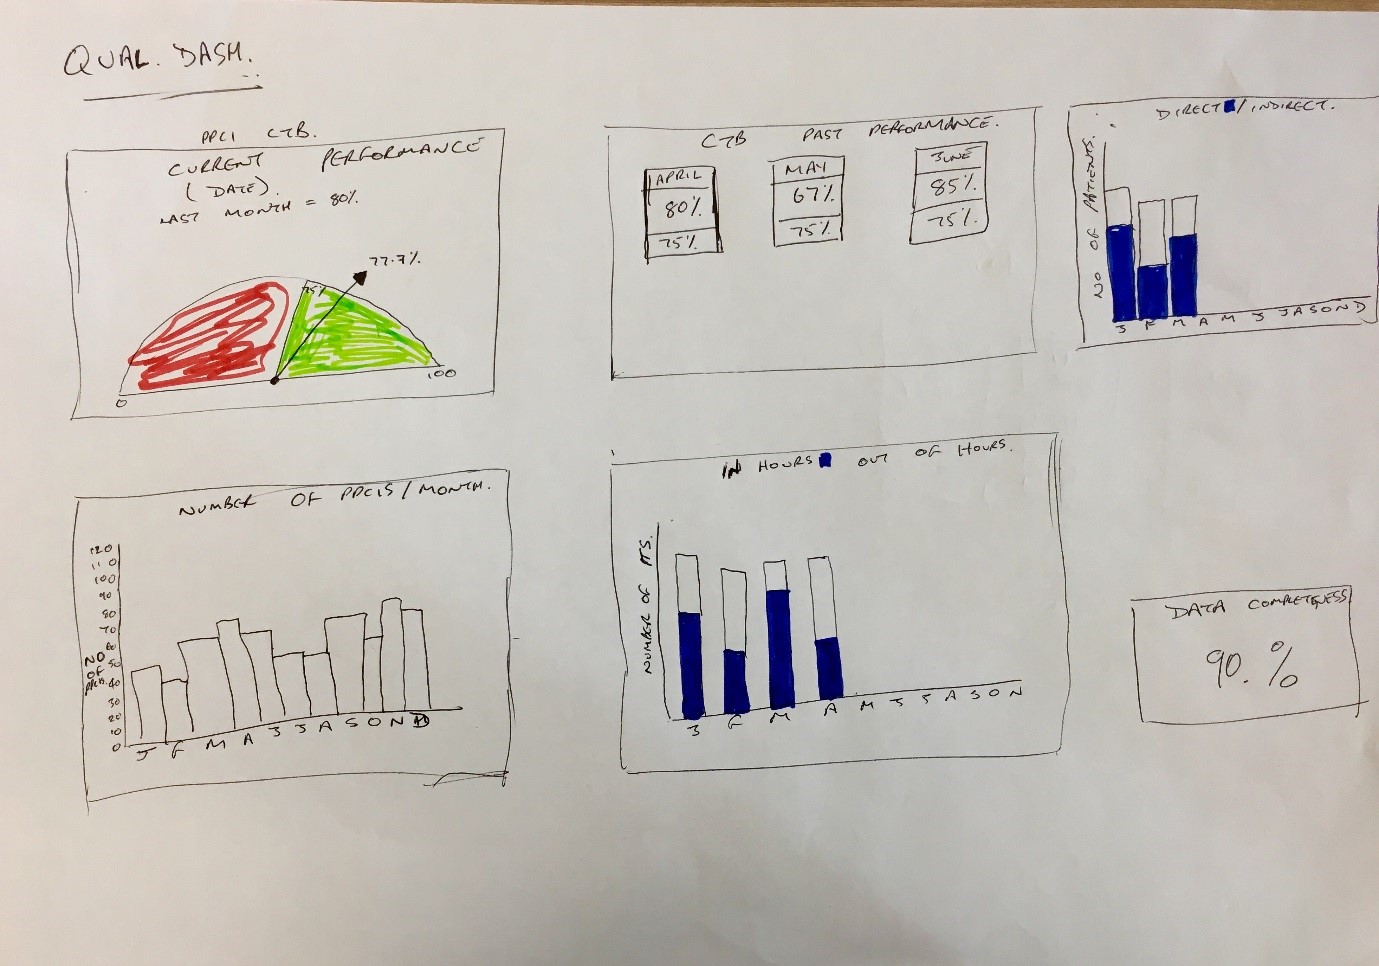 QUAL. DASH.
PPCI CTB.
CURRENT PERFORMANCE
(DATE).
LAST MONTH = 80%.
77.7%.
75%
0
100
CTB PAST PERFORMANCE.
APRIL
80%.
75%.
MAY
67%.
75%.
JUNE
85%.
75%.
DIRECT / INDIRECT.
NO OF PATIENTS.
J F M A M J J A S O N D
NUMBER OF PPCIS / MONTH.
120
110
100
90
80
70
60
50
40
30
20
10
0
NO
OF
PPCIS.
J F M A J J A S O N D
IN HOURS OUT OF HOURS.
NUMBER OF PTS.
J F M A M J J A S O N
DATA COMPLETENESS
90.%